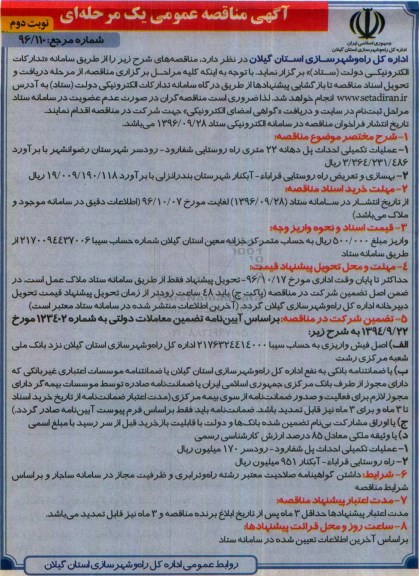 آگهی مناقصه عمومی یک مرحله‌ای
نوبت دوم
شماره مرجع: ۹۶/۱۱۰
جمهوری اسلامی ایران
اداره کل راه‌وشهرسازی استان گیلان
اداره کل راه‌وشهرسازی استان گیلان در نظر دارد، مناقصه‌های شرح زیر را از طریق سامانه «تدارکات
الکترونیکی دولت (ستاد)» برگزار نماید. با توجه به اینکه کلیه مراحل برگزاری مناقصه از مرحله دریافت و
تحویل اسناد مناقصه تا بازگشایی پیشنهادها از طریق درگاه سامانه تدارکات الکترونیکی دولت (ستاد) به آدرس
www.setadiran.ir انجام خواهد شد. لذا ضروری است مناقصه گران در صورت عدم عضویت در سامانه ستاد
مراحل ثبت‌نام در سایت و دریافت «گواهی امضای الکترونیکی» جهت شرکت در مناقصه اقدام نمایند.
تاریخ انتشار فراخوان مناقصه در سامانه الکترونیکی ستاد ۱۳۹۶/۰۹/۲۸ می‌باشد.
۱- شرح مختصر موضوع مناقصه:
۱- عملیات تکمیلی احداث پل دهانه ۲۲ متری راه روستایی شفارود- رودسر شهرستان رضوانشهر با برآورد
۳/۳۶۴/۲۳۱/۴۸۶ ریال
۲- بهسازی و تعریض راه روستایی فراباء- آبکنار شهرستان بندرانزلی با برآورد ۱۹/۰۰۹/۱۹۰/۱۱۸ ریال
۲- مهلت خرید اسناد مناقصه:
از تاریخ انتشار در سامانه ستاد (۱۳۹۶/۰۹/۲۸) لغایت مورخ ۹۶/۱۰/۰۷ (اطلاعات دقیق در سامانه موجود و
ملاک می‌باشد)
۳- قیمت اسناد و نحوه واریز وجه:
واریز مبلغ ۵۰۰/۰۰۰ ریال به حساب متمرکز خزانه معین استان گیلان شماره حساب سیبا ۲۱۷۰۰۹۴۴۳۷۰۰۶ از
طریق سامانه ستاد
۴- مهلت و محل تحویل پیشنهاد قیمت:
حداکثر تا پایان وقت اداری مورخ ۹۶/۱۰/۱۷- تحویل پیشنهاد فقط از طریق سامانه ستاد ملاک عمل است. در
ضمن اصل تضمین شرکت در مناقصه (پاکت ج) باید ۴۸ ساعت زودتر از زمان تحویل پیشنهاد قیمت تحویل
دبیرخانه اداره کل راه‌وشهرسازی گیلان گردد. (آخرین اطلاعات منتشر شده در سامانه ستاد معتبر است)
۵- تضمین شرکت در مناقصه: براساس آیین‌نامه تضمین معاملات دولتی به شماره ۱۲۳۴۰۲ مورخ
۱۳۹۴/۹/۲۲ به شرح زیر:
الف) اصل فیش واریزی به حساب سیبا ۲۱۷۶۳۲۴۴۱۴۰۰۰ اداره کل راه‌وشهرسازی استان گیلان نزد بانک ملی
شعبه مرکزی رشت
ب) یا ضمانتنامه بانکی به نفع اداره کل راه‌وشهرسازی استان گیلان یا ضمانتنامه موسسات اعتباری غیربانکی که
دارای مجوز از طرف بانک مرکزی جمهوری اسلامی ایران یا ضمانت‌نامه صادره توسط موسسات بیمه‌گر دارای
مجوز لازم برای فعالیت و صدور ضمانت‌نامه از سوی بیمه مرکزی (مدت اعتبار ضمانت‌نامه از تاریخ خرید اسناد
تا ۳ ماه و برای ۳ ماه نیز قابل تمدید باشد. ضمانت‌نامه باید فقط براساس فرم پیوست آیین‌نامه صادر گردد.)
ج) یا اوراق مشارکت بی‌نام تضمین شده بانک‌ها و دولت با قابلیت بازخرید قبل از سر رسید با مبلغ اسمی
د) یا وثیقه ملکی معادل ۸۵ درصد ارزش کارشناسی رسمی
۱- عملیات تکمیلی احداث پل شفارود- رودسر ۱۷۰ میلیون ریال
۲- راه روستایی فراباء- آبکنار ۹۵۱ میلیون ریال
۶- شرایط: داشتن گواهینامه صلاحیت معتبر رشته راه‌وترابری و ظرفیت مجاز در سامانه ساجار و براساس
شرایط مناقصه
۷- مدت اعتبار پیشنهاد مناقصه:
مدت اعتبار پیشنهادها حداقل ۳ ماه پس از تاریخ ابلاغ برنده مناقصه و ۳ ماه نیز قابل تمدید می‌باشد.
۸- ساعت روز و محل قرائت پیشنهادها:
براساس آخرین اطلاعات تعیین شده در سامانه ستاد
روابط عمومی اداره کل راه‌وشهرسازی استان گیلان